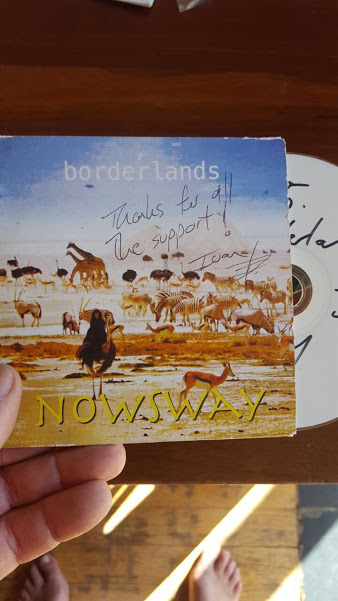 borderlands
Thanks for all
the support!!
NOWSWAY